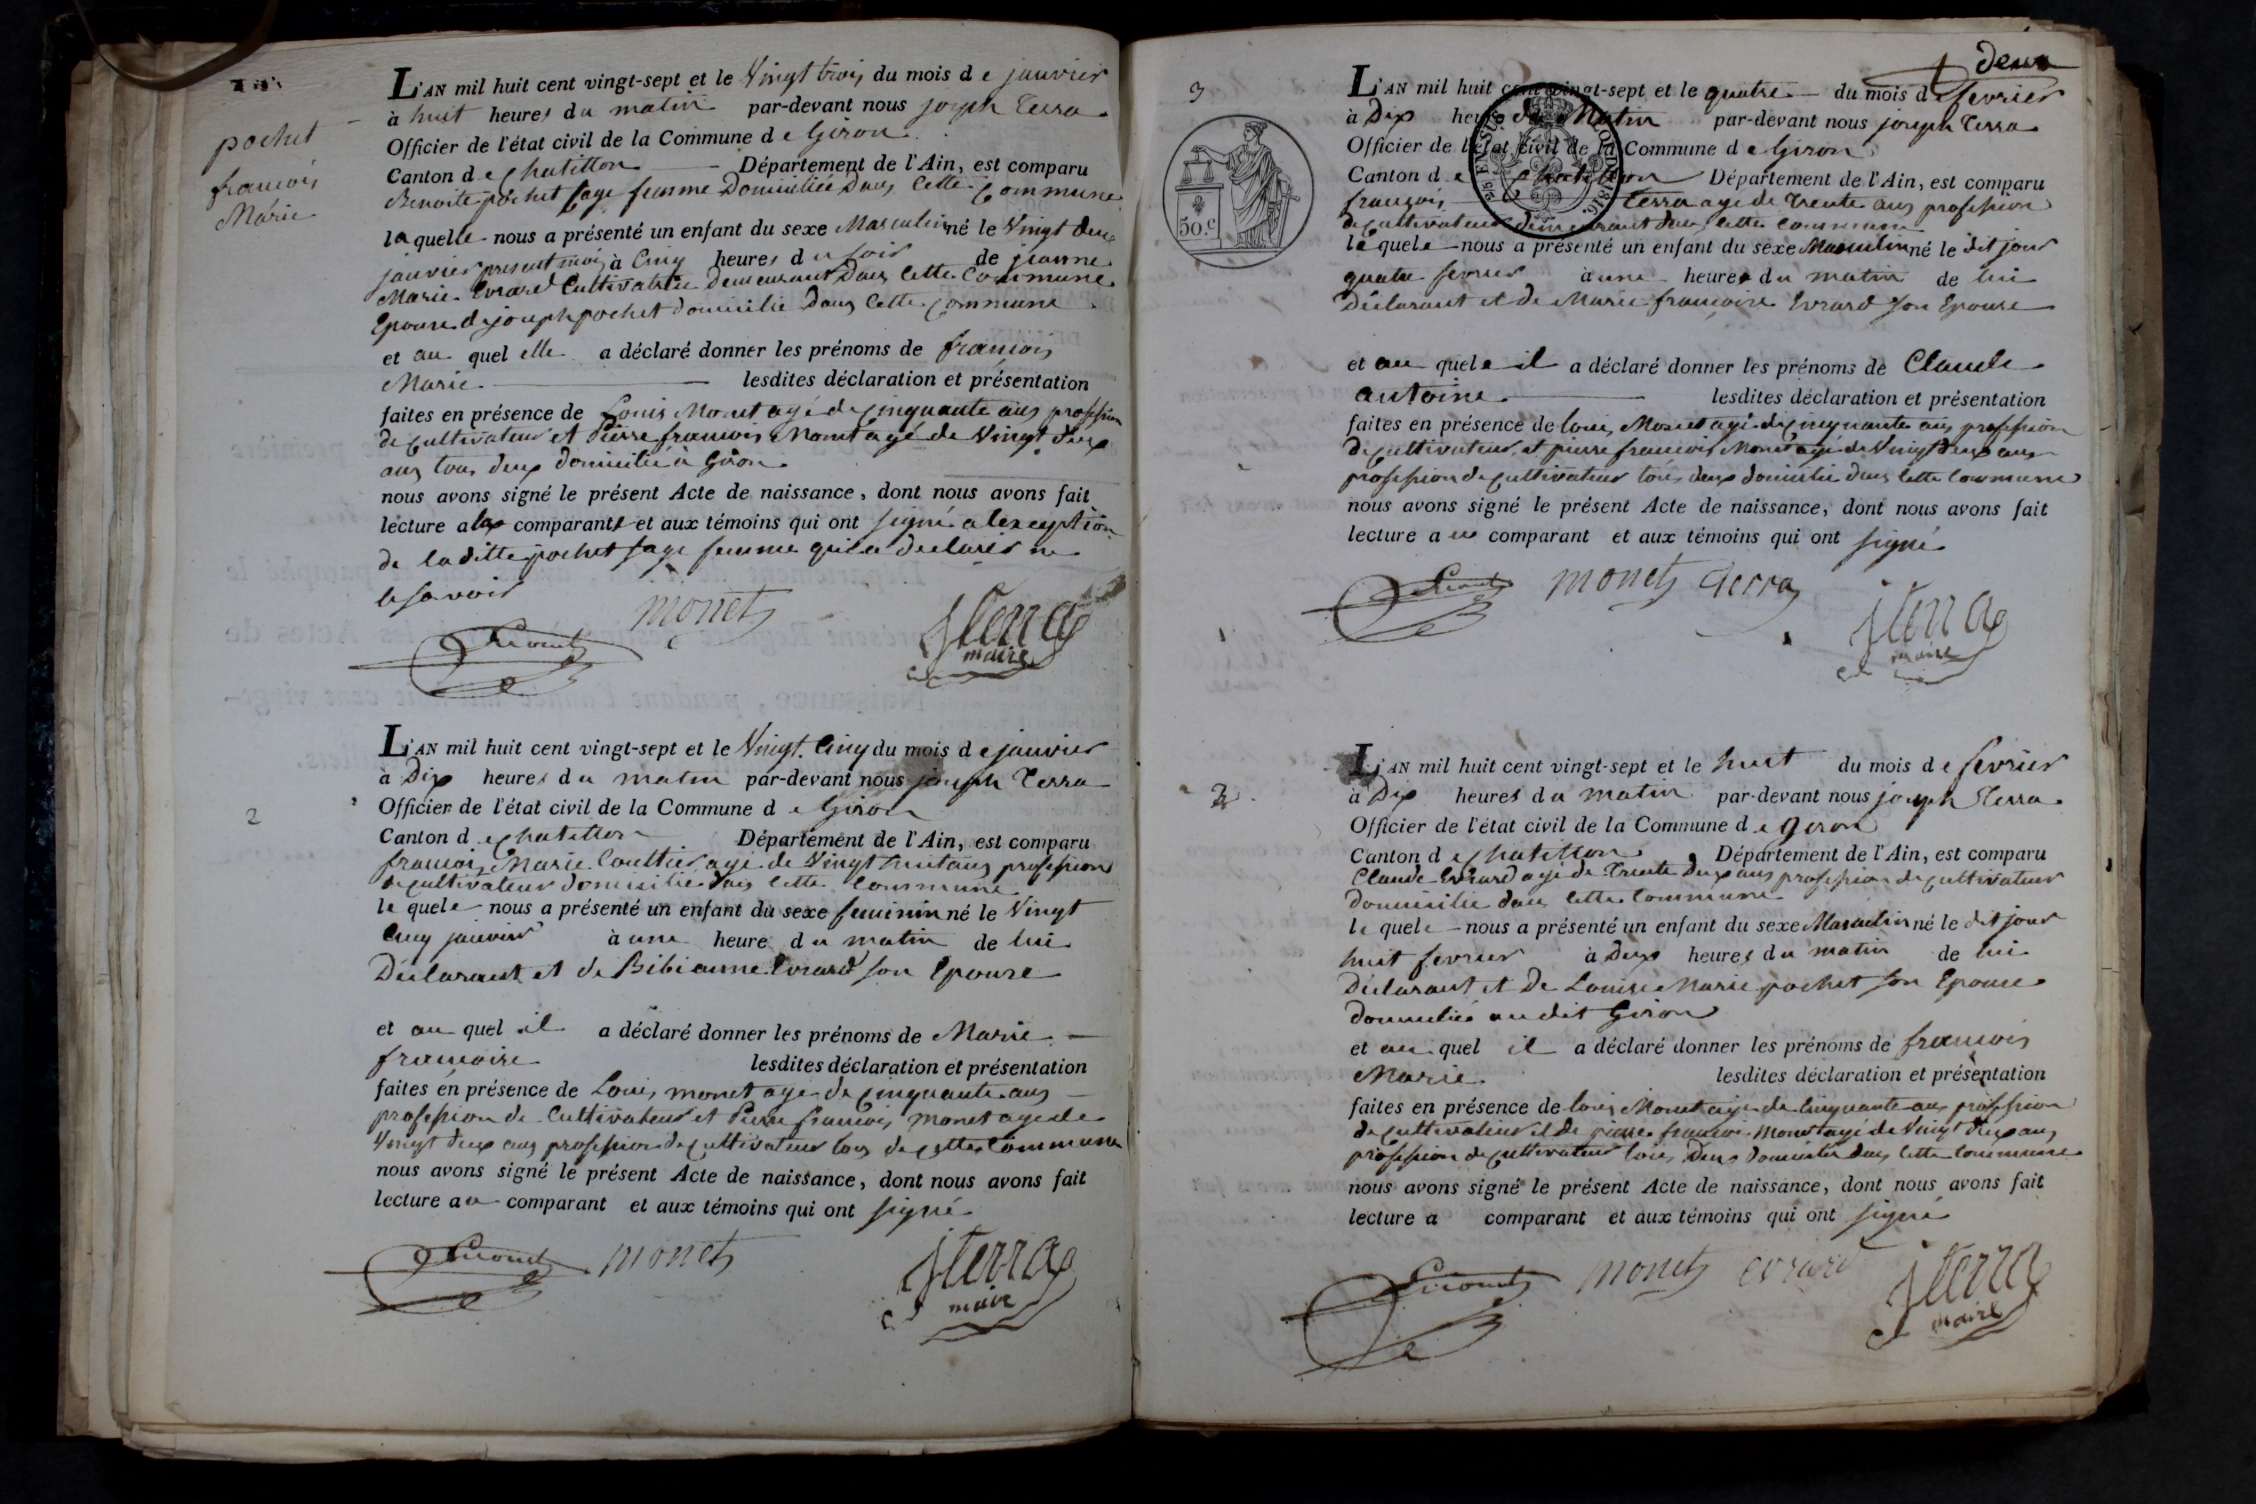 pochet
françois
Marie
L'AN mil huit cent vingt-sept et le Vingt trois du mois d e janvier
à huit heures du matin par-devant nous joseph Terra
Officier de l'état civil de la Commune d e Giron
Canton d e chatillon Département de l'Ain, est comparu
Benoite pochet sage femme Domiciliée Dans Cette Commune
laquelle nous a présenté un enfant du sexe Masculin né le Vingt deux
janvier present mois à Cinq heures du soir de jeanne
Marie Evrard Cultivatrice Demeurant Dans Cette Commune
Epouse de joseph pochet domicilié Dans Cette Commune
et au quel elle a déclaré donner les prénoms de francois
Marie lesdites déclaration et présentation
faites en présence de Louis Monet agé de Cinquante ans profession
de cultivateur et Pierre francois Monet agé de Vingt deux
ans tous deux domicilié à Giron
nous avons signé le présent Acte de naissance, dont nous avons fait
lecture a la comparante et aux témoins qui ont signé a lexception
de la ditte pochet sage femme qui a declaré ne
le savoir
monet
jterra
maire
2
L'AN mil huit cent vingt-sept et le Vingt Cinq du mois d e janvier
à Dix heures du matin par-devant nous joseph Terra
Officier de l'état civil de la Commune d e Giron
Canton d e chatillon Département de l'Ain, est comparu
francois Marie Coultier agé de Vingt huit ans profession
de cultivateur domicilié dans Cette Commune
le quel nous a présenté un enfant du sexe feminin né le Vingt
Cinq janvier à une heure du matin de lui
Déclarant et de Bibienne Evrard son Epouse
et au quel il a déclaré donner les prénoms de Marie
francoise lesdites déclaration et présentation
faites en présence de Louis monet agé de Cinquante ans
profession de Cultivateur et Pierre francois monet agé de
Vingt deux ans profession de cultivateur tous de cette Commune
nous avons signé le présent Acte de naissance, dont nous avons fait
lecture au comparant et aux témoins qui ont signé
monet
jterra
maire
deux
3
50.c
L'AN mil huit cent vingt-sept et le quatre du mois d e fevrier
à Dix heures du Matin par-devant nous joseph Terra
Officier de l'état civil de la Commune d e Giron
Canton d e chatillon Département de l'Ain, est comparu
françois Terra agé de Trente ans profession
de cultivateur demeurant dans cette commune
le quel nous a présenté un enfant du sexe Masculin né le dit jour
quatre fevrier à une heure du matin de lui
Déclarant et de Marie francoise Evrard son Epouse
et au quel il a déclaré donner les prénoms de Claude
antoine lesdites déclaration et présentation
faites en présence de louis Monet agé de cinquante ans profession
de cultivateur et pierre francois Monet agé de Vingt Deux ans
profession de cultivateur tous deux domicilié dans Cette Commune
nous avons signé le présent Acte de naissance, dont nous avons fait
lecture au comparant et aux témoins qui ont signé
monet terra
jterra
maire
L'AN mil huit cent vingt-sept et le huit du mois d e fevrier
à Dix heures du matin par-devant nous joseph Terra
Officier de l'état civil de la Commune d e giron
Canton d e chatillon Département de l'Ain, est comparu
Claude Evrard agé de Trente Deux ans profession de cultivateur
Domicilié dans Cette Commune
le quel nous a présenté un enfant du sexe Masculin né le dit jour
huit fevrier à Deux heures du matin de lui
Déclarant et De Louise Marie pochet son Epouse
domicilié au dit Giron
et au quel il a déclaré donner les prénoms de francois
Marie lesdites déclaration et présentation
faites en présence de louis Monet agé de Cinquante ans profession
de cultivateur et de pierre francois Monet agé de Vingt Deux ans
profession de cultivateur tous Deux domicilié dans Cette Commune
nous avons signé le présent Acte de naissance, dont nous avons fait
lecture a comparant et aux témoins qui ont signé
monet evrard
jterra
maire